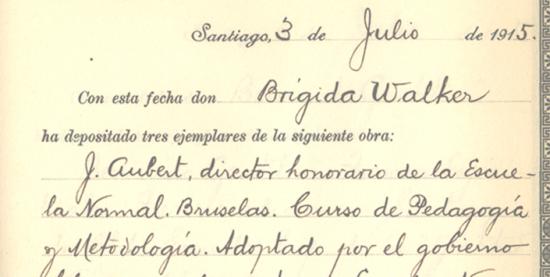 Santiago, 3 de Julio de 1915.
Con esta fecha don Brígida Walker
ha depositado tres ejemplares de la siguiente obra:
J. Aubert, director honorario de la Escue-
la Normal. Bruselas. Curso de Pedagogía
y Metodología. Adoptado por el gobierno